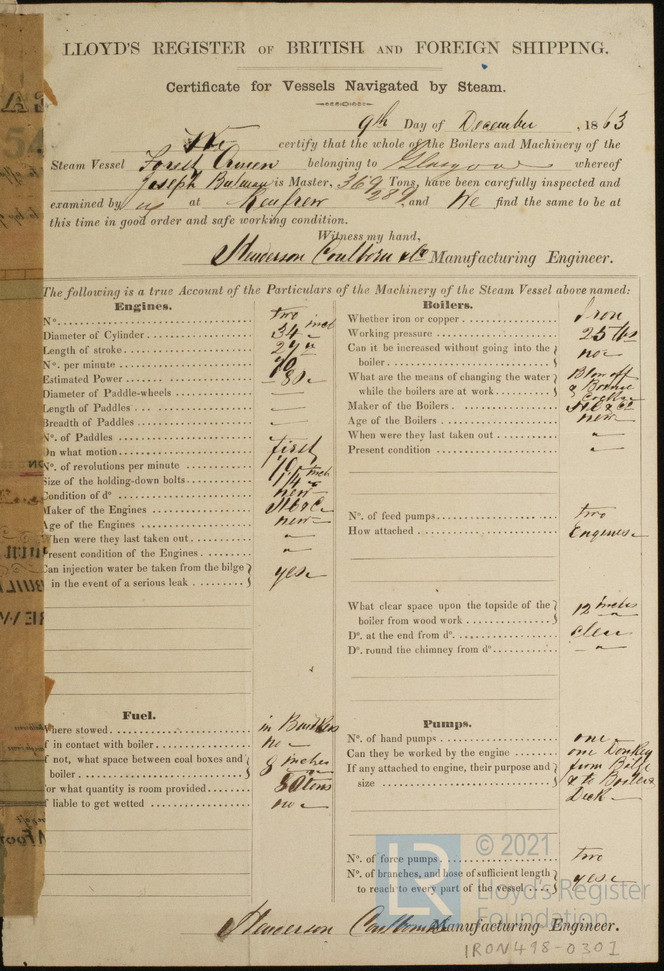 LLOYD'S REGISTER OF BRITISH AND FOREIGN SHIPPING.
Certificate for Vessels Navigated by Steam.
9th Day of December, 1863
We certify that the whole of the Boilers and Machinery of the
Steam Vessel Forest Queen belonging to Glasgow whereof
Joseph Bateman is Master, 369 Tons, have been carefully inspected and
289
examined by us at Renfrew and We find the same to be at
this time in good order and safe working condition.
Witness my hand,
Henderson Coulborn & Co Manufacturing Engineer.
The following is a true Account of the Particulars of the Machinery of the Steam Vessel above named:
Engines.
No. two
Diameter of Cylinder 34 inch
Length of stroke 27 "
No. per minute 70
Estimated Power 80
Diameter of Paddle-wheels
Length of Paddles
Breadth of Paddles
No. of Paddles
On what motion first
No. of revolutions per minute 70
Size of the holding-down bolts 1 1/4 inch
Condition of do new
Maker of the Engines H C & Co
Age of the Engines new
When were they last taken out "
Present condition of the Engines "
Can injection water be taken from the bilge
in the event of a serious leak yes
Fuel.
Where stowed in Bunkers
If in contact with boiler no
If not, what space between coal boxes and
boiler 8 inches
For what quantity is room provided 50 tons
If liable to get wetted no
Boilers.
Whether iron or copper Iron
Working pressure 25 lbs
Can it be increased without going into the
boiler no
What are the means of changing the water
while the boilers are at work Blow off & Brine Cocks
Maker of the Boilers H C & Co
Age of the Boilers new
When were they last taken out "
Present condition "
No. of feed pumps two
How attached Engines
What clear space upon the topside of the
boiler from wood work 12 inches
Do. at the end from do. clear
Do. round the chimney from do. "
Pumps.
No. of hand pumps one
Can they be worked by the engine one Donkey
If any attached to engine, their purpose and
size from Bilge & to Boiler & Deck
No. of force pumps two
No. of branches, and hose of sufficient length
to reach to every part of the vessel yes
Henderson Coulborn & Co Manufacturing Engineer.
IRON498-0301
LR
© 2021
Lloyd's Register
Foundation